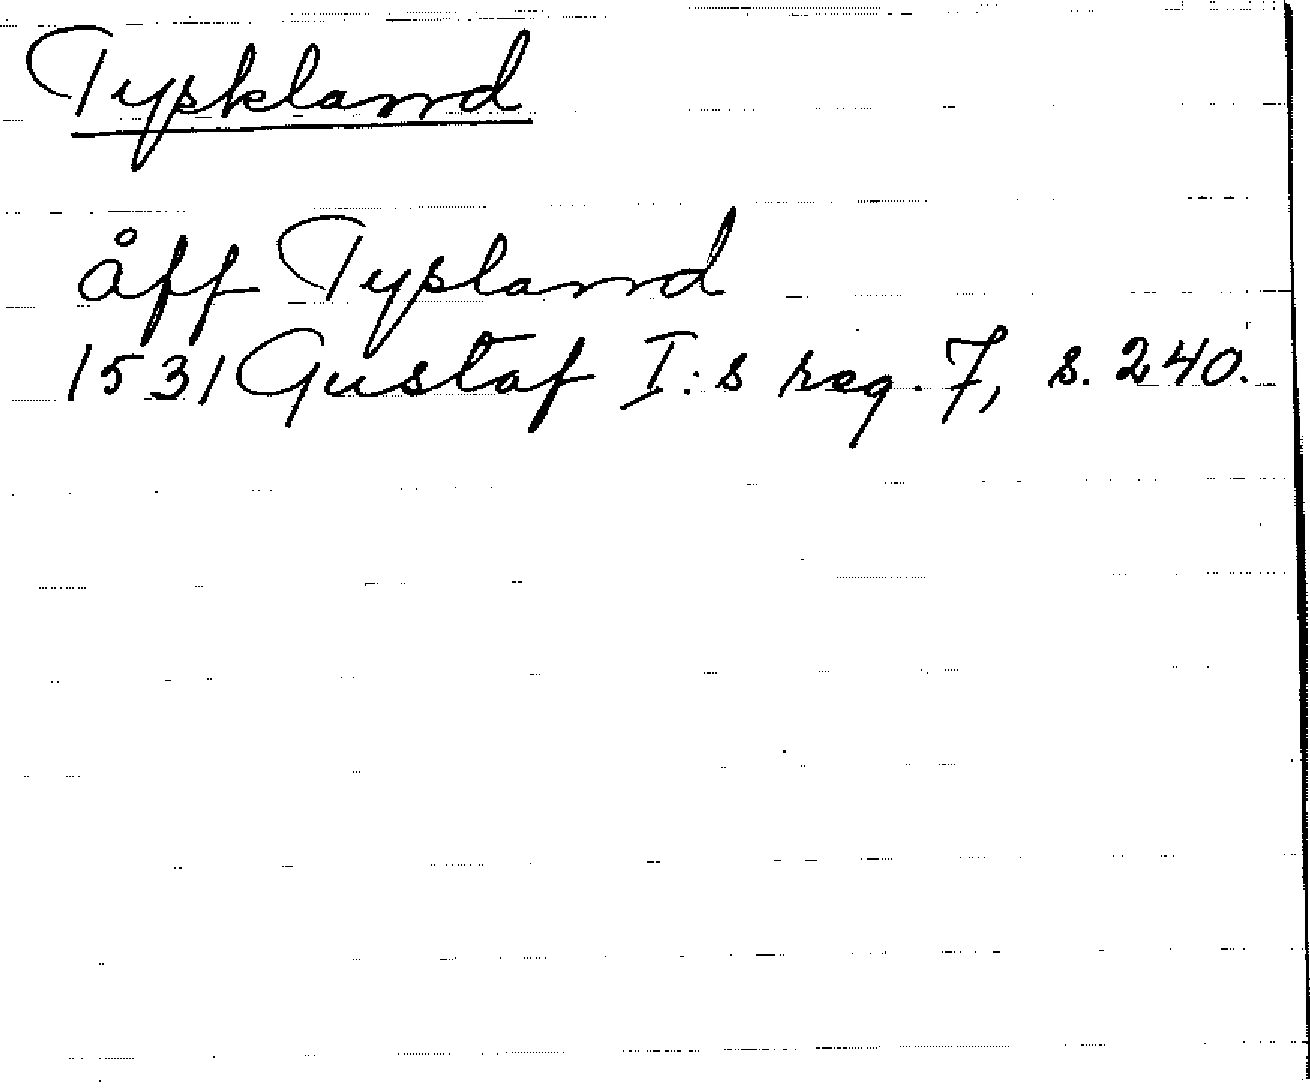 Tyskland
åff Tysland
1531 Gustaf I:s reg. 7, s. 240.